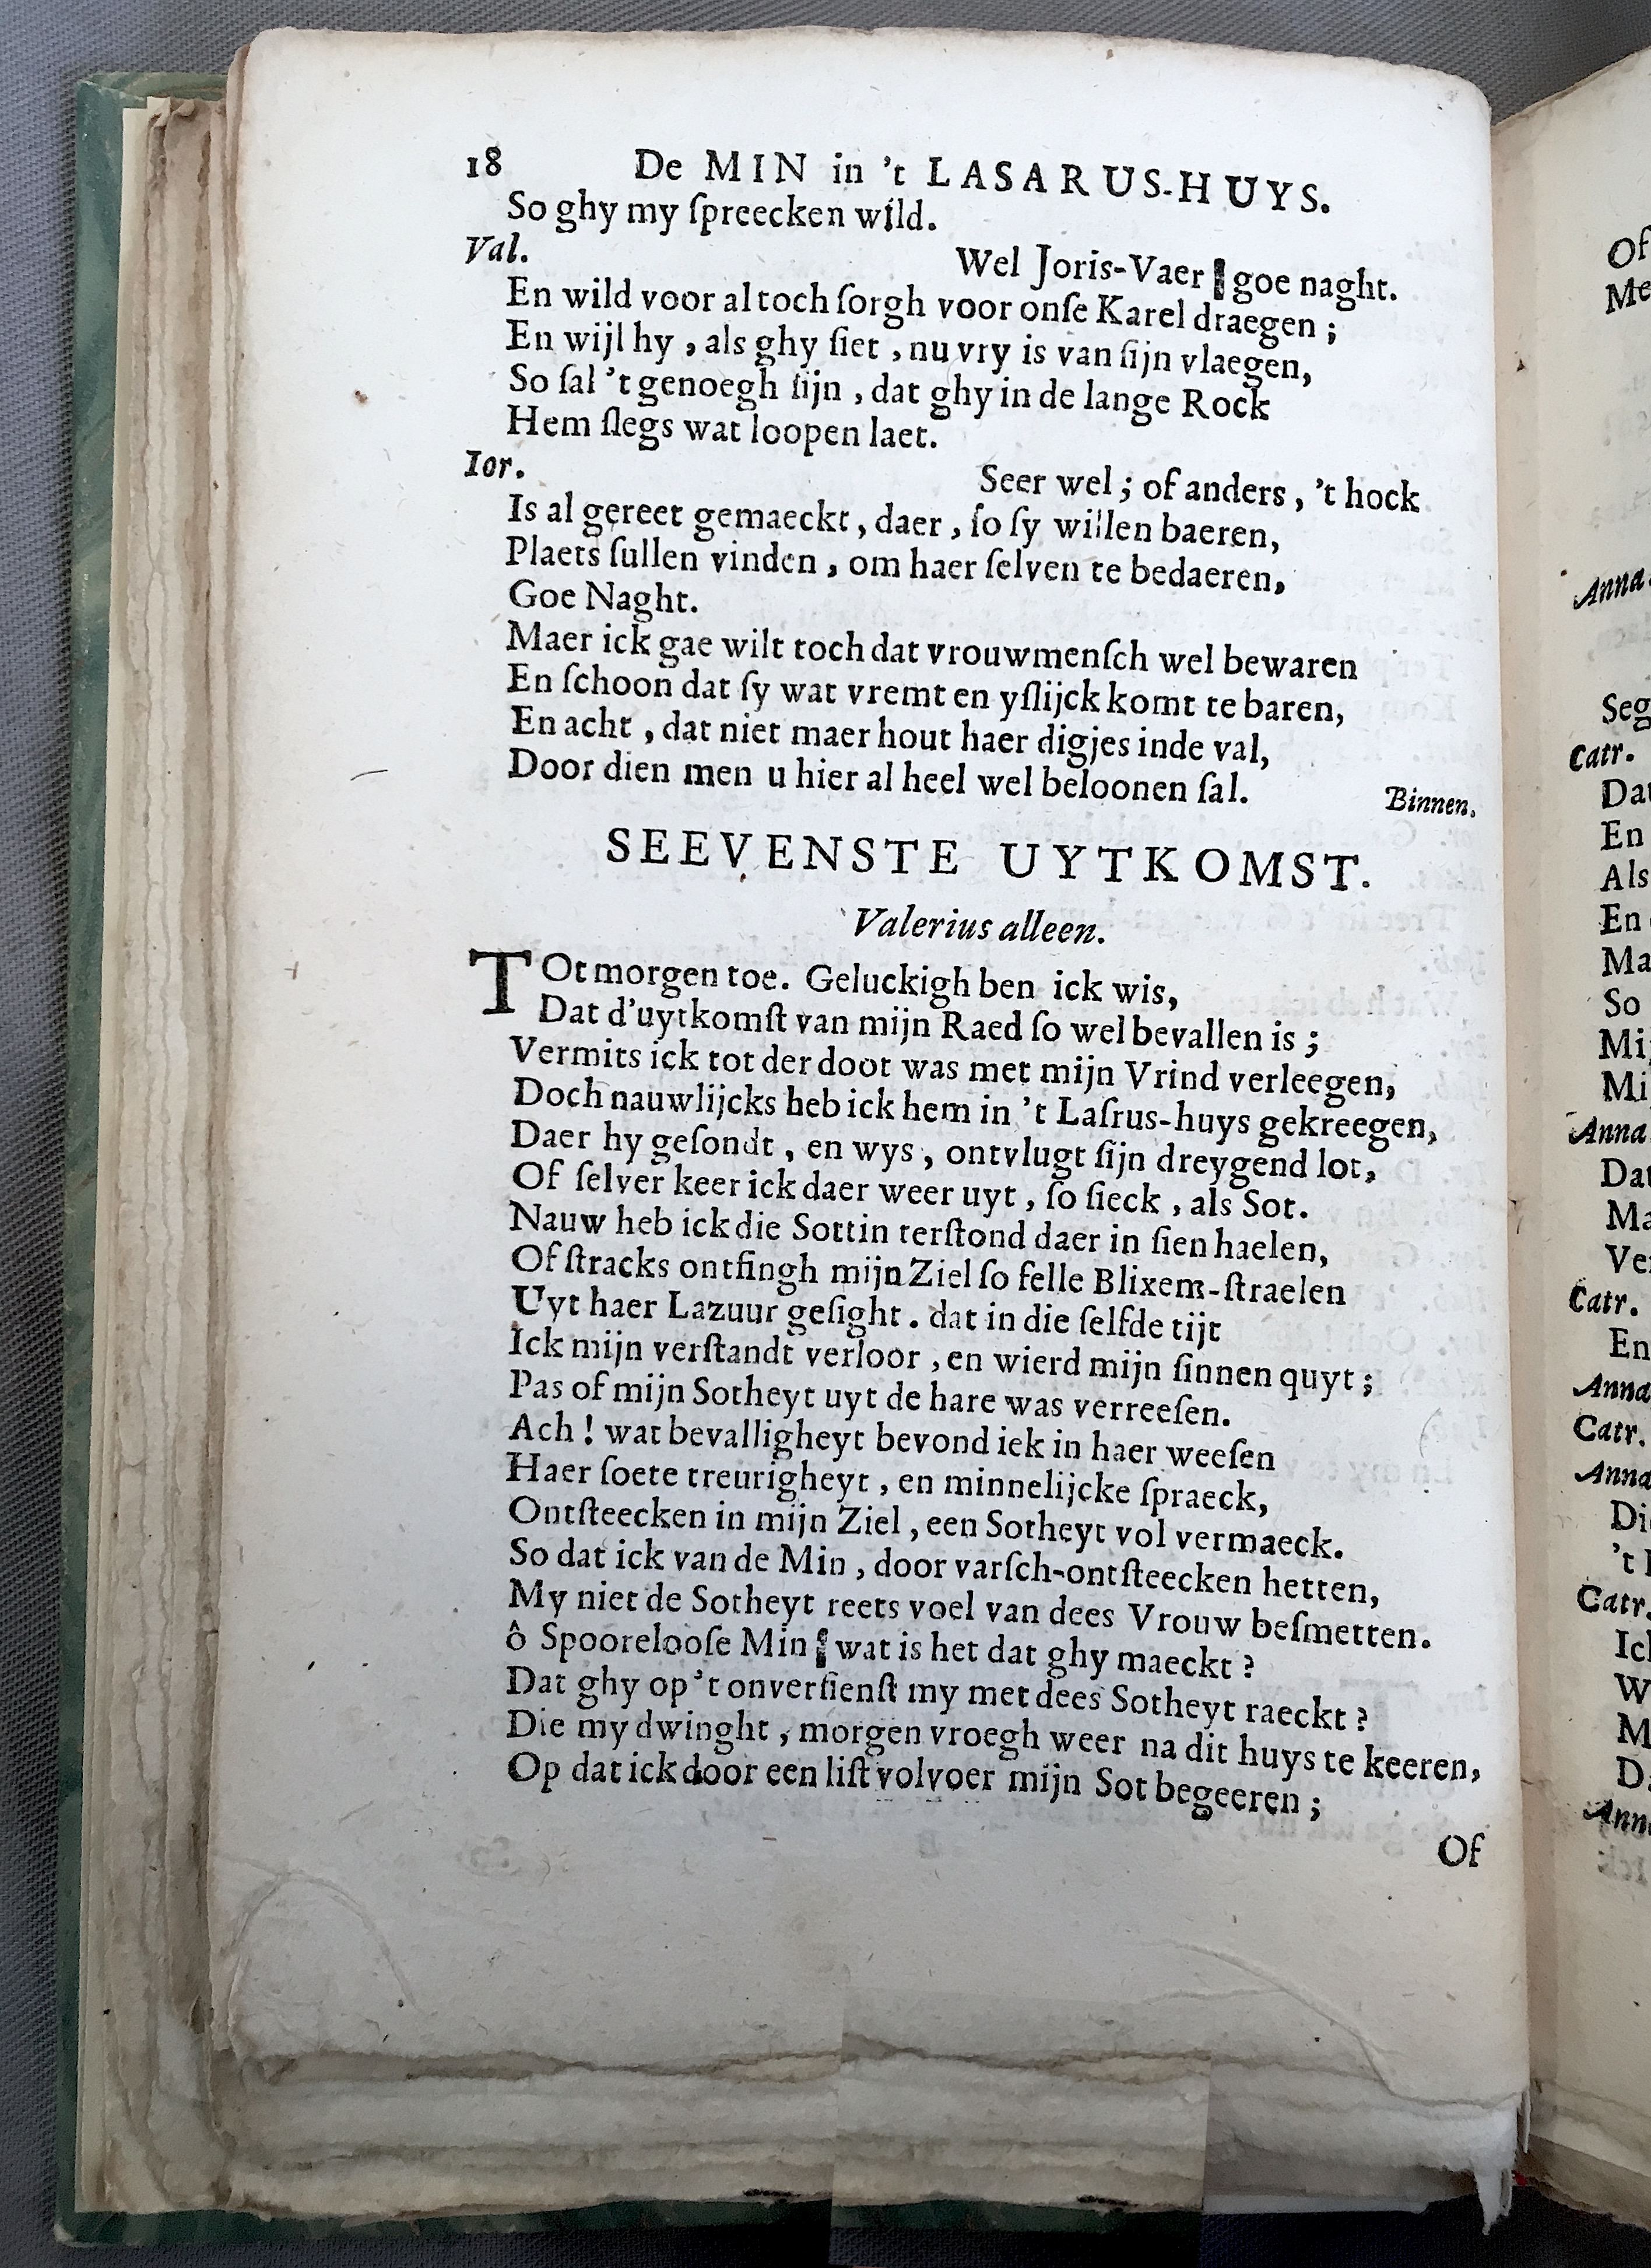 18 De MIN in 't LASARUS-HUYS.
So ghy my ſpreecken wild.
Val.
Wel Joris-Vaer goe naght.
En wild voor al toch ſorgh voor onſe Karel draegen ;
En wijl hy , als ghy ſiet , nu vry is van ſijn vlaegen,
So ſal 't genoegh ſijn , dat ghy in de lange Rock
Hem ſlegs wat loopen laet.
Ior.
Seer wel ; of anders , 't hock
Is al gereet gemaeckt , daer , ſo ſy willen baeren,
Plaets ſullen vinden , om haer ſelven te bedaeren,
Goe Naght.
Maer ick gae wilt toch dat vrouwmenſch wel bewaren
En ſchoon dat ſy wat vremt en yſlijck komt te baren,
En acht , dat niet maer hout haer digjes inde val,
Door dien men u hier al heel wel beloonen ſal.
Binnen.
SEEVENSTE UYTKOMST.
Valerius alleen.
TOt morgen toe. Geluckigh ben ick wis,
Dat d'uytkomſt van mijn Raed ſo wel bevallen is ;
Vermits ick tot der doot was met mijn Vrind verleegen,
Doch nauwlijcks heb ick hem in 't Laſrus-huys gekreegen,
Daer hy geſondt , en wys , ontvlugt ſijn dreygend lot,
Of ſelver keer ick daer weer uyt , ſo ſieck , als Sot.
Nauw heb ick die Sottin terſtond daer in ſien haelen,
Of ſtracks ontfingh mijn Ziel ſo felle Blixem-ſtraelen
Uyt haer Lazuur geſight . dat in die ſelfde tijt
Ick mijn verſtandt verloor , en wierd mijn ſinnen quyt ;
Pas of mijn Sotheyt uyt de hare was verreeſen.
Ach ! wat bevalligheyt bevond iek in haer weeſen
Haer ſoete treurigheyt , en minnelijcke ſpraeck,
Ontſteecken in mijn Ziel , een Sotheyt vol vermaeck.
So dat ick van de Min , door varſch-ontſteecken hetten,
My niet de Sotheyt reets voel van dees Vrouw beſmetten.
ô Spoorelooſe Min wat is het dat ghy maeckt ?
Dat ghy op 't onverſienſt my met dees Sotheyt raeckt ?
Die my dwinght , morgen vroegh weer na dit huys te keeren,
Op dat ick door een liſt volvoer mijn Sot begeeren ;
Of
Of
Me
Anna
Seg
Catr.
Dat
En
Als
En
Ma
So
Mi
Mi
Anna
Dat
Ma
Ver
Catr.
En
Anna
Catr.
Anna
Die
't
Catr.
Ick
W
M
D
Anna